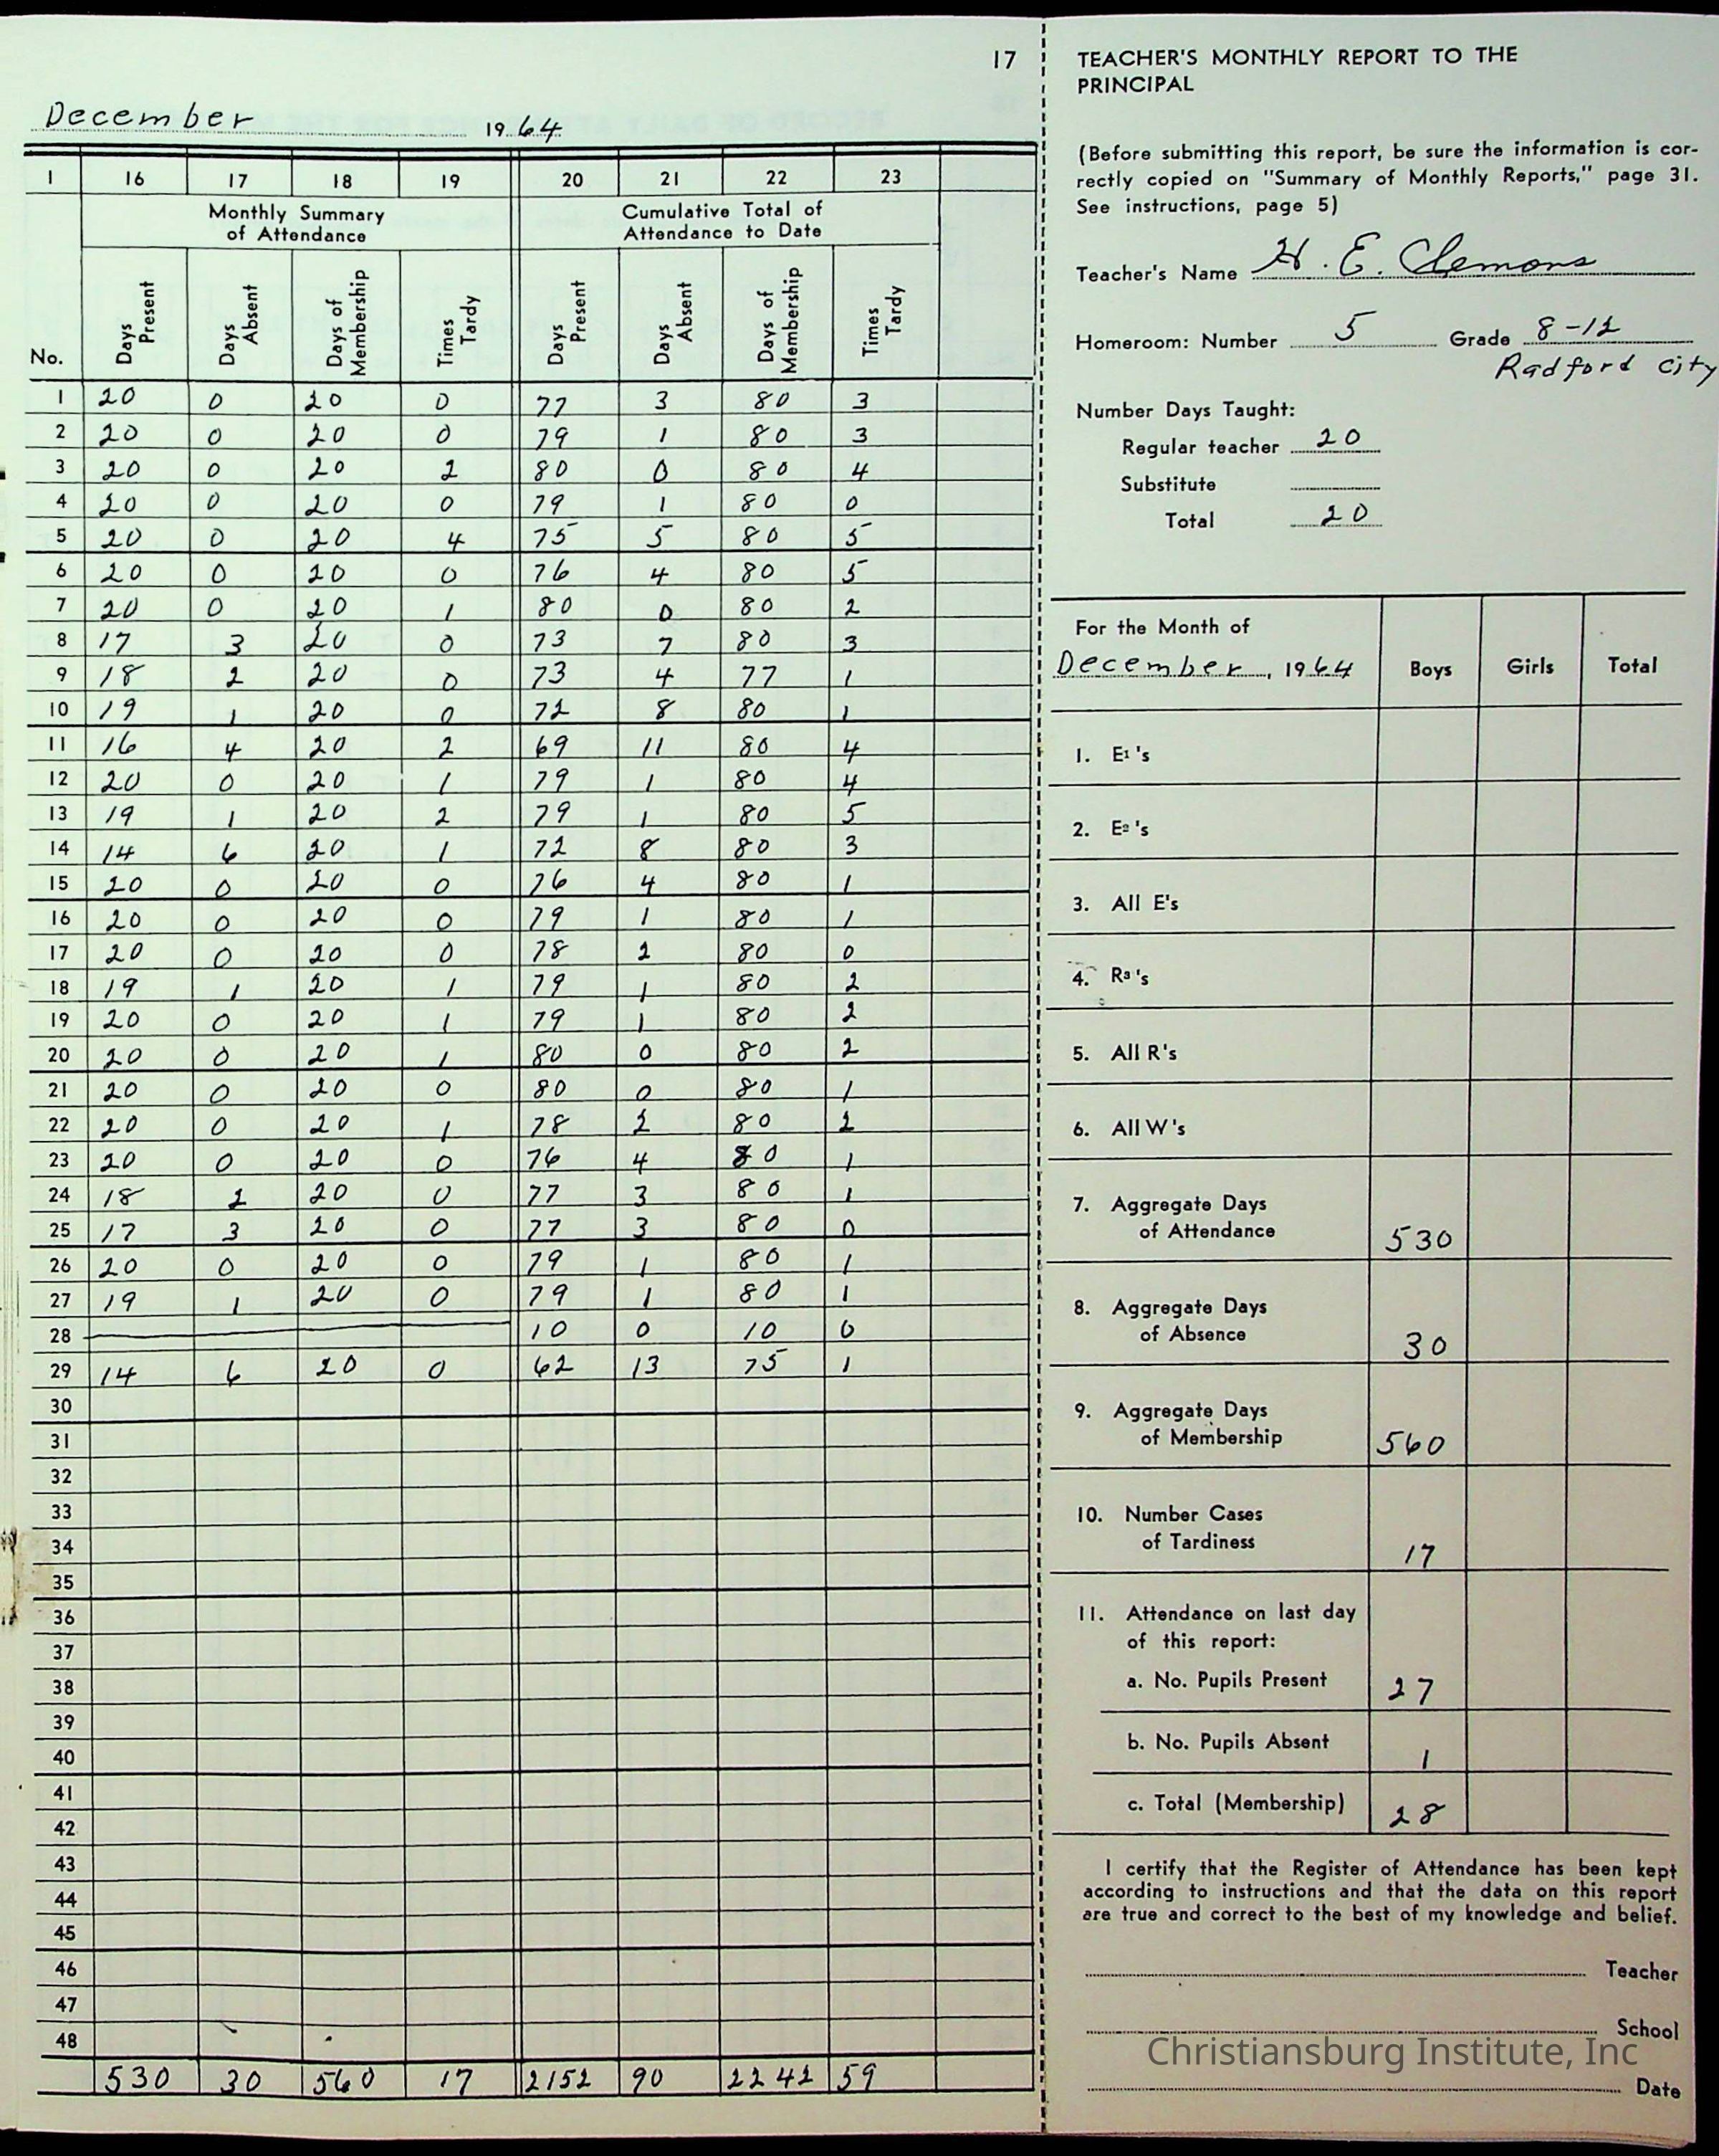 17
December 1964
1 16 17 18 19 20 21 22 23
Monthly Summary of Attendance Cumulative Total of Attendance to Date
No. Days Present Days Absent Days of Membership Times Tardy Days Present Days Absent Days of Membership Times Tardy
1 20 0 20 0 77 3 80 3
2 20 0 20 0 79 1 80 3
3 20 0 20 2 80 0 80 4
4 20 0 20 0 79 1 80 0
5 20 0 20 4 75 5 80 5
6 20 0 20 0 76 4 80 5
7 20 0 20 1 80 0 80 2
8 17 3 20 0 73 7 80 3
9 18 2 20 0 73 4 77 1
10 19 1 20 0 72 8 80 1
11 16 4 20 2 69 11 80 4
12 20 0 20 1 79 1 80 4
13 19 1 20 2 79 1 80 5
14 14 6 20 1 72 8 80 3
15 20 0 20 0 76 4 80 1
16 20 0 20 0 79 1 80 1
17 20 0 20 0 78 2 80 0
18 19 1 20 1 79 1 80 2
19 20 0 20 1 79 1 80 2
20 20 0 20 1 80 0 80 2
21 20 0 20 0 80 0 80 1
22 20 0 20 1 78 2 80 2
23 20 0 20 0 76 4 80 1
24 18 2 20 0 77 3 80 1
25 17 3 20 0 77 3 80 0
26 20 0 20 0 79 1 80 1
27 19 1 20 0 79 1 80 1
28 10 0 10 0
29 14 6 20 0 62 13 75 1
30
31
32
33
34
35
36
37
38
39
40
41
42
43
44
45
46
47
48
530 30 560 17 2152 90 2242 59
TEACHER'S MONTHLY REPORT TO THE
PRINCIPAL
(Before submitting this report, be sure the information is cor-
rectly copied on "Summary of Monthly Reports," page 31.
See instructions, page 5)
Teacher's Name H. E. Clemons
Homeroom: Number 5 Grade 8-12
Radford City
Number Days Taught:
Regular teacher 20
Substitute
Total 20
For the Month of
December, 1964 Boys Girls Total
1. E1's
2. E2's
3. All E's
4. R3's
5. All R's
6. All W's
7. Aggregate Days
of Attendance 530
8. Aggregate Days
of Absence 30
9. Aggregate Days
of Membership 560
10. Number Cases
of Tardiness 17
11. Attendance on last day
of this report:
a. No. Pupils Present 27
b. No. Pupils Absent 1
c. Total (Membership) 28
I certify that the Register of Attendance has been kept
according to instructions and that the data on this report
are true and correct to the best of my knowledge and belief.
Teacher
School
Christiansburg Institute, Inc
Date